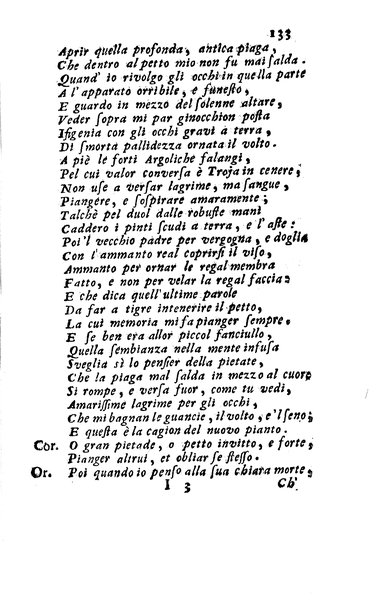 133
Aprir quella profonda, antica piaga,
Che dentro al petto mio non fu mai salda.
Quand' io rivolgo gli occhi in quella parte
A l'apparato orribile, e funesto,
E guardo in mezzo del solenne altare,
Veder sopra mi par ginocchion posta
Ifigenia con gli occhi gravi a terra,
Di smorta pallidezza ornata il volto.
A piè le forti Argoliche falangi,
Pel cui valor conversa è Troja in cenere;
Non use a versar lagrime, ma sangue,
Piangere, e sospirare amaramente;
Talchè pel duol dalle robuste mani
Caddero i pinti scudi a terra, e l'aste:
Poi 'l vecchio padre per vergogna, e doglia
Con l'ammanto real coprirsi il viso,
Ammanto per ornar le regal membra
Fatto, e non per velar la regal faccia:
E che dica quell'ultime parole
Da far a tigre intenerire il petto,
La cui memoria mi fa pianger sempre.
E se ben era allor piccol fanciullo,
Quella sembianza nella mente infusa
Sveglia sì lo pensier della pietate,
Che la piaga mal salda in mezzo al cuore
Si rompe, e versa fuor, come tu vedi,
Amarissime lagrime per gli occhi,
Che mi bagnan le guancie, il volto, e 'l seno;
E questa è la cagion del nuovo pianto.
Cor. O gran pietade, o petto invitto, e forte,
Pianger altrui, et obliar se stesso.
Or. Poi quando io penso alla sua chiara morte,
I 3 Ch'